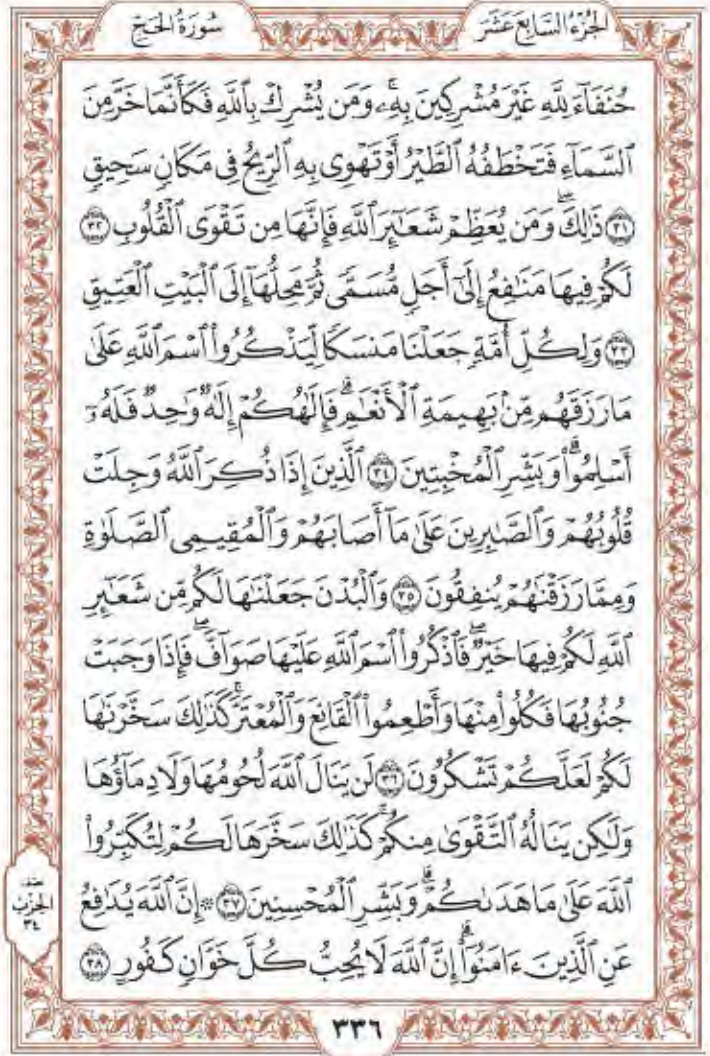 الجُزْءُ السَّابِعَ عَشَرَ
سُورَةُ الحَجّ
حُنَفَآءَ لِلَّهِ غَيْرَ مُشْرِكِينَ بِهِۦۚ وَمَن يُشْرِكْ بِٱللَّهِ فَكَأَنَّمَا خَرَّ مِنَ
ٱلسَّمَآءِ فَتَخْطَفُهُ ٱلطَّيْرُ أَوْ تَهْوِى بِهِ ٱلرِّيحُ فِى مَكَانٍ سَحِيقٍ
٣١ ذَٰلِكَۖ وَمَن يُعَظِّمْ شَعَـٰٓئِرَ ٱللَّهِ فَإِنَّهَا مِن تَقْوَى ٱلْقُلُوبِ ٣٢
لَكُمْ فِيهَا مَنَـٰفِعُ إِلَىٰٓ أَجَلٍ مُّسَمًّى ثُمَّ مَحِلُّهَآ إِلَى ٱلْبَيْتِ ٱلْعَتِيقِ
٣٣ وَلِكُلِّ أُمَّةٍ جَعَلْنَا مَنسَكًا لِّيَذْكُرُوا۟ ٱسْمَ ٱللَّهِ عَلَىٰ
مَا رَزَقَهُم مِّنۢ بَهِيمَةِ ٱلْأَنْعَـٰمِۗ فَإِلَـٰهُكُمْ إِلَـٰهٌ وَٰحِدٌ فَلَهُۥٓ
أَسْلِمُوا۟ۗ وَبَشِّرِ ٱلْمُخْبِتِينَ ٣٤ ٱلَّذِينَ إِذَا ذُكِرَ ٱللَّهُ وَجِلَتْ
قُلُوبُهُمْ وَٱلصَّـٰبِرِينَ عَلَىٰ مَآ أَصَابَهُمْ وَٱلْمُقِيمِى ٱلصَّلَوٰةِ
وَمِمَّا رَزَقْنَـٰهُمْ يُنفِقُونَ ٣٥ وَٱلْبُدْنَ جَعَلْنَـٰهَا لَكُم مِّن شَعَـٰٓئِرِ
ٱللَّهِ لَكُمْ فِيهَا خَيْرٌۖ فَٱذْكُرُوا۟ ٱسْمَ ٱللَّهِ عَلَيْهَا صَوَآفَّۖ فَإِذَا وَجَبَتْ
جُنُوبُهَا فَكُلُوا۟ مِنْهَا وَأَطْعِمُوا۟ ٱلْقَانِعَ وَٱلْمُعْتَرَّۚ كَذَٰلِكَ سَخَّرْنَـٰهَا
لَكُمْ لَعَلَّكُمْ تَشْكُرُونَ ٣٦ لَن يَنَالَ ٱللَّهَ لُحُومُهَا وَلَا دِمَآؤُهَا
وَلَـٰكِن يَنَالُهُ ٱلتَّقْوَىٰ مِنكُمْۚ كَذَٰلِكَ سَخَّرَهَا لَكُمْ لِتُكَبِّرُوا۟
ٱللَّهَ عَلَىٰ مَا هَدَىٰكُمْۗ وَبَشِّرِ ٱلْمُحْسِنِينَ ٣٧ ۞ إِنَّ ٱللَّهَ يُدَٰفِعُ
عَنِ ٱلَّذِينَ ءَامَنُوٓا۟ۗ إِنَّ ٱللَّهَ لَا يُحِبُّ كُلَّ خَوَّانٍ كَفُورٍ ٣٨
نصف
الحِزْب
٣٤
٣٣٦